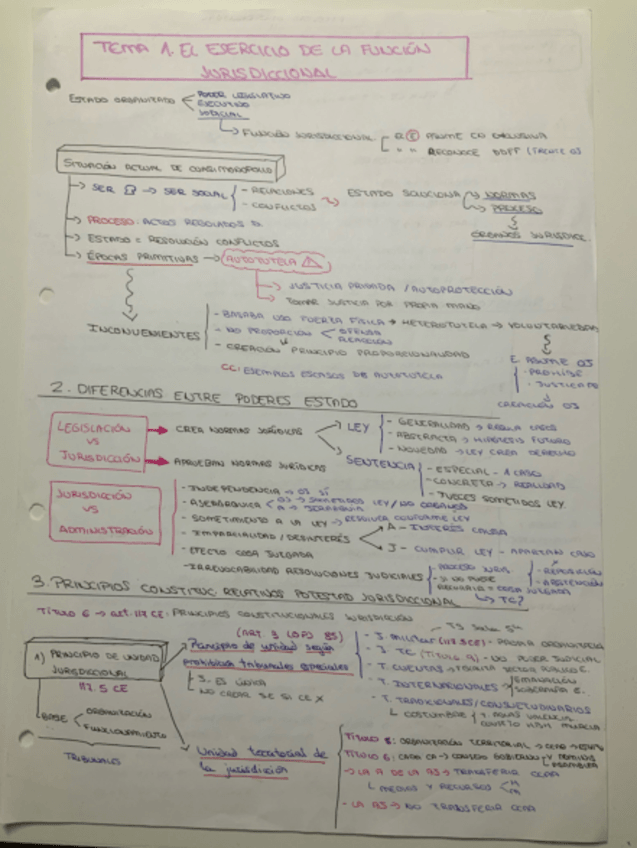 TEMA 1. EL EJERCICIO DE LA FUNCIÓN
JURISDICCIONAL
ESTADO ORGANIZADO PODER LEGISLATIVO
EJECUTIVO
JUDICIAL
FUNCIÓN JURISDICCIONAL ASUME CO EXCLUSIVA
RECONOCE DDFF
SITUACIÓN ACTUAL DE
→ SER → SER SOCIAL - RELACIONES
- CONFLICTOS
ESTADO SOLUCIONA NORMAS
PROCESO
ÓRGANOS JURISDICC.
→ PROCESO: ACTOS REGULADOS
→ ESTADO = RESOLUCIÓN CONFLICTOS
→ ÉPOCAS PRIMITIVAS → AUTOTUTELA
→ JUSTICIA PRIVADA / AUTOPROTECCIÓN
→ TOMAR JUSTICIA POR PROPIA MANO
INCONVENIENTES
- BASABA USO FUERZA FÍSICA → HETEROTUTELA →
- NO PROPORCIÓN OFENSA
REACCIÓN
- CREACIÓN PRINCIPIO PROPORCIONALIDAD
CC: EJEMPLOS ESCASOS DE AUTOTUTELA
E. ASUME OJ
- PROHÍBE
CREACIÓN OJ
2. DIFERENCIAS ENTRE PODERES ESTADO
LEGISLACIÓN
VS
JURISDICCIÓN
CREA NORMAS JURÍDICAS
LEY - GENERALIDAD → REGULA CASOS
- ABSTRACTA → HIPÓTESIS FUTURO
- NOVEDAD → LEY CREA DERECHO
NORMAS JURÍDICAS
SENTENCIA - ESPECIAL - 1 CASO
- CONCRETA → REALIDAD
- JUECES SOMETIDOS LEY
JURISDICCIÓN
VS
ADMINISTRACIÓN
- INDEPENDENCIA → OJ SÍ
OJ → SOMETIDOS LEY / NO ÓRGANOS
A → JERARQUÍA
- SOMETIMIENTO A LA LEY → RESOLVER CONFORME LEY
- IMPARCIALIDAD / DESINTERÉS
A - INTERÉS CAUSA
J - CUMPLIR LEY - APARTAN CASO
- EFECTO COSA JUZGADA
- IRREVOCABILIDAD RESOLUCIONES JUDICIALES
- ABSTENCIÓN
COSA JUZGADA
TC?
3. PRINCIPIOS CONSTITUC. RELATIVOS POTESTAD JURISDICCIONAL
TÍTULO 6 → art. 117 CE: PRINCIPIOS CONSTITUCIONALES JURISDICCIÓN
1) PRINCIPIO DE UNIDAD
JURISDICCIONAL
117.5 CE
(ART 3 LOPJ 85)
Principio de unidad según
prohibición tribunales especiales
J. ES ÚNICA
TS Sala 5ª
- J. MILITAR (117.5 CE)
- J. TC (TÍTULO 9) - NO PODER JUDICIAL
- T. CUENTAS → SECTOR PÚBLICO E.
- T. INTERNACIONALES → EMANACIÓN
SOBERANÍA E.
- T. TRADICIONALES / CONSUETUDINARIOS
COSTUMBRE T. AGUAS VALENCIA
MURCIA
BASE ORGANIZACIÓN
FUNCIONAMIENTO
TRIBUNALES
Unidad territorial de
la jurisdicción
TÍTULO 8: ORGANIZACIÓN TERRITORIAL
TÍTULO 6:
→ LA A DE LA AJ → TRANSFERIR CCAA
MEDIOS Y RECURSOS
- LA AJ → NO TRANSFERIR CCAA